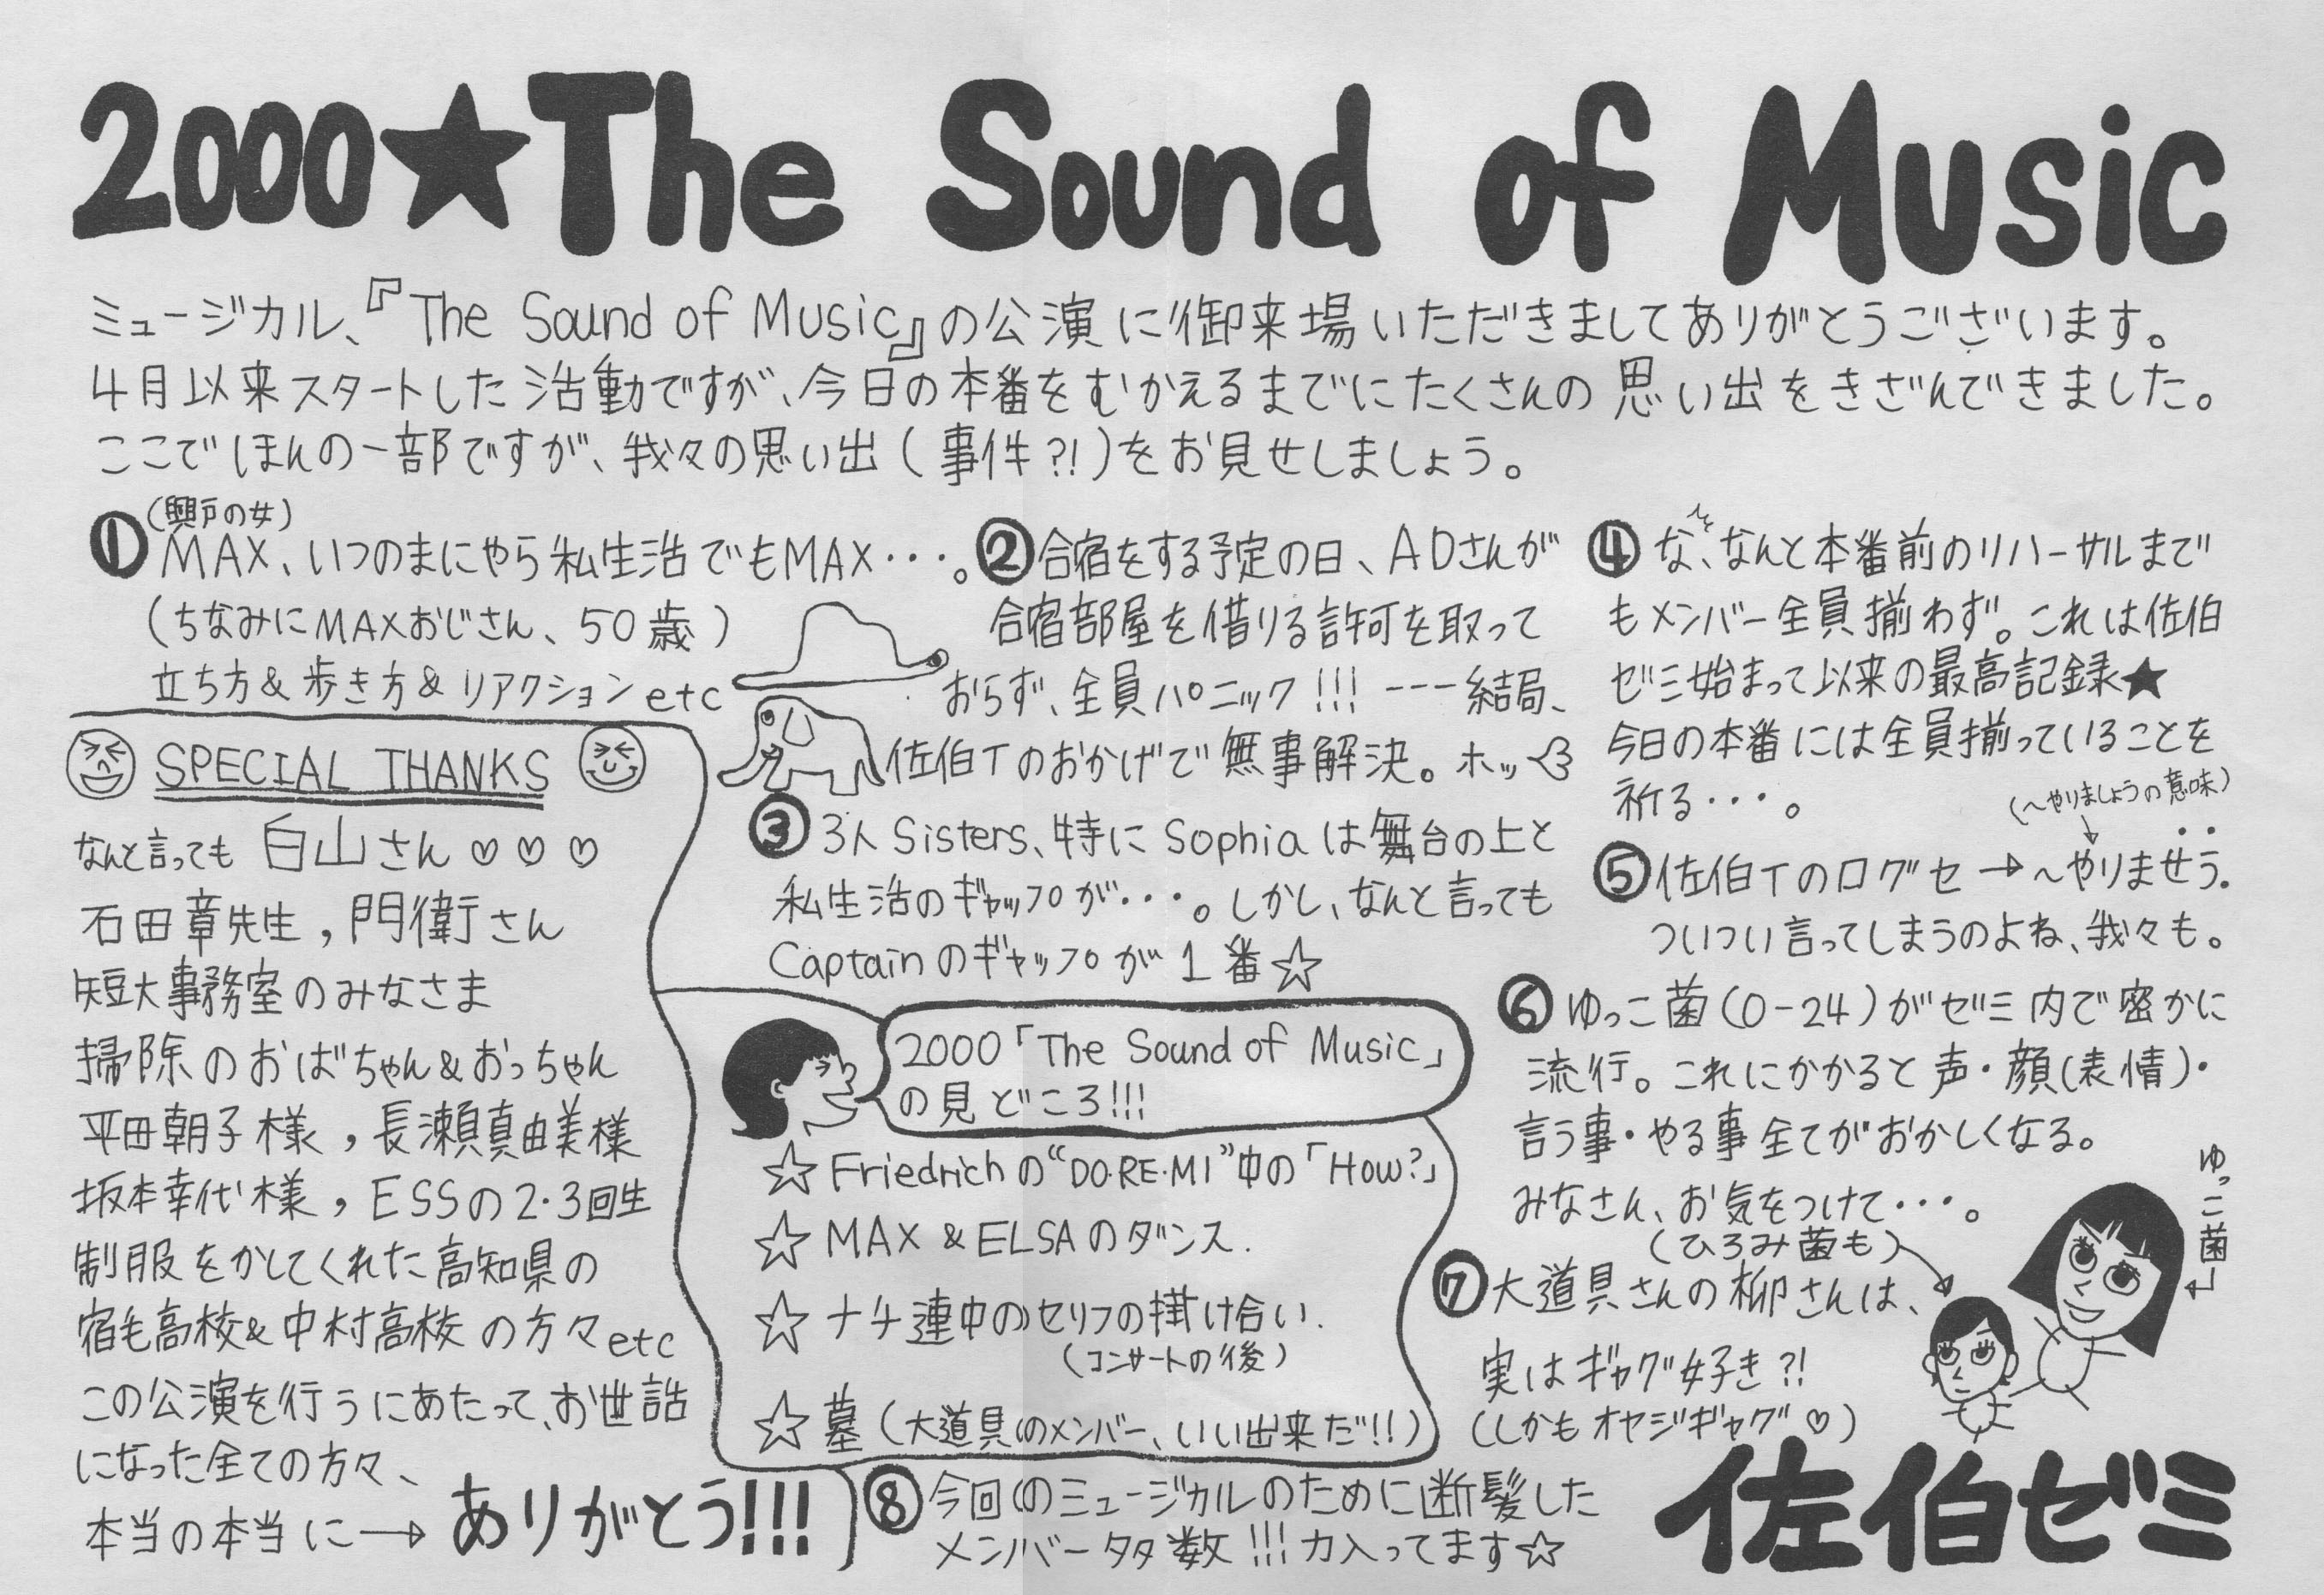 2000★The Sound of Music
ミュージカル、『The Sound of Music』の公演に御来場いただきましてありがとうございます。
4月以来スタートした活動ですが、今日の本番をむかえるまでにたくさんの思い出をきざんできました。
ここでほんの一部ですが、我々の思い出(事件?!)をお見せしましょう。
(興戸の女)
① MAX、いつのまにやら私生活でもMAX・・・。
(ちなみにMAXおじさん、50歳)
立ち方&歩き方&リアクションetc
② 合宿をする予定の日、ADさんが
合宿部屋を借りる許可を取って
おらず、全員パニック!!! ---結局、
佐伯Tのおかげで無事解決。ホッ
③ 3人Sisters、特にSophiaは舞台の上と
私生活のギャップが・・・。しかし、なんと言っても
Captainのギャップが1番☆
④ な、なんと本番前のリハーサルまで
もメンバー全員揃わず。これは佐伯
ゼミ始まって以来の最高記録★
今日の本番には全員揃っていることを
祈る・・・。
(〜やりましょうの意味)
⑤ 佐伯Tの口グセ→〜やりませう.
ついつい言ってしまうのよね、我々も。
⑥ ゆっこ菌(O-24)がゼミ内で密かに
流行。これにかかると声・顔(表情)・
言う事・やる事全てがおかしくなる。
みなさん、お気をつけて・・・。
(ひろみ菌も)
ゆっこ菌
⑦ 大道具さんの柳さんは、
実はギャグ好き?!
(しかもオヤジギャグ♡)
SPECIAL THANKS
なんと言っても 白山さん♡♡♡
石田章先生,門衛さん
短大事務室のみなさま
掃除のおばちゃん&おっちゃん
平田朝子様,長瀬真由美様
坂本幸代様,ESSの2・3回生
制服をかしてくれた高知県の
宿毛高校&中村高校の方々etc
この公演を行うにあたって、お世話
になった全ての方々、
本当の本当に→ありがとう!!!
2000「The Sound of Music」
の見どころ!!!
☆ Friedrichの“DO・RE・MI”中の「How?」
☆ MAX & ELSAのダンス.
☆ ナチ連中のセリフの掛け合い.
(コンサートの後)
☆ 墓(大道具のメンバー、いい出来だ!!)
⑧ 今回のミュージカルのために断髪した
メンバー多数!!!力入ってます☆
佐伯ゼミ